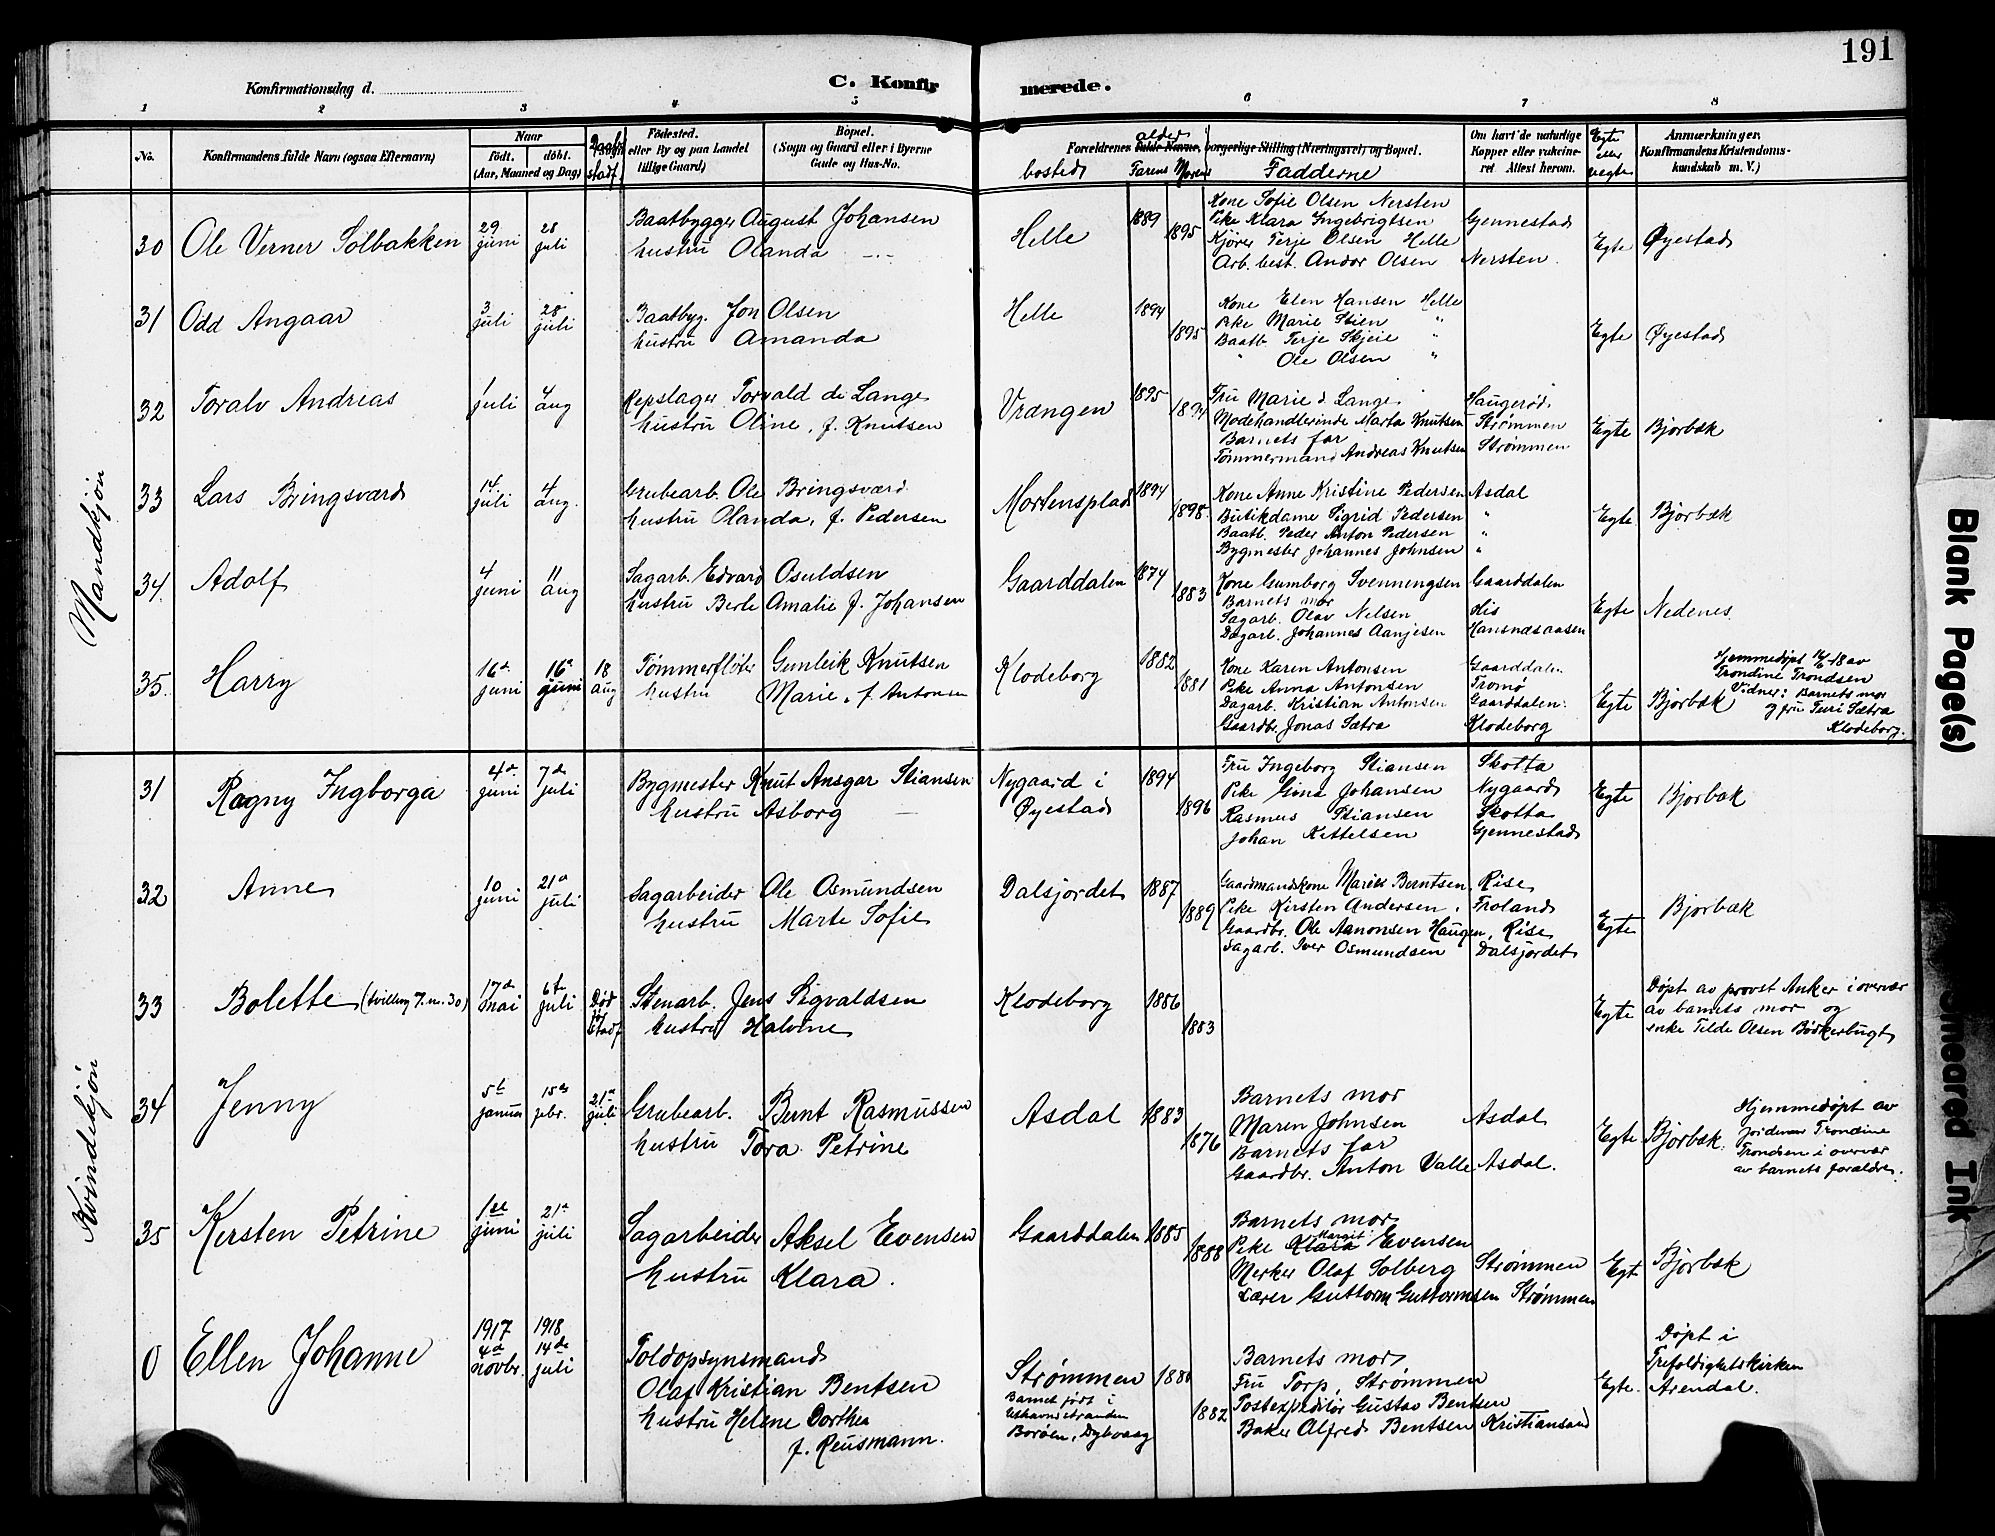 191
Konfirmationsdag d.
C. Konfirmerede.
1 2 3 4 5 6 7 8
No.
Konfirmandens fulde Navn (ogsaa Efternavn)
Naar
født. døbt.
(Aar, Maaned og Dag)
Fødested.
eller By og paa Landet
tillige Gaard)
Bopæl.
(Sogn og Gaard eller i Byerne
Gade og Hus-No.
Forældrenes fulde Navne, borgerlige Stilling (Næringsvei) og Bopæl.
alder
bosted Farens Morens Fadderne
Om havt de naturlige
Kopper eller vakcine-
ret Attest herom.
Egte
eller
uegte
Anmærkninger.
Konfirmandens Kristendoms-
kundskab m. V.)
Mandkjøn
30 Ole Verner Solbakken 29 juni 28 juli
Baatbygger August Johansen
hustru Olanda
Helle 1889 1895
Kone Sofie Olsen Nersten
Pike Klara Ingebrigtsen Gennestad
Kjører Terje Olsen Helle
Arb. best. Andor Olsen Nersten.
Egte Øyestad
31 Odd Angaar 3 juli 28 juli
Baatbyg. Jon Olsen
hustru Amanda
Helle 1894 1895
Kone Elen Hansen Helle
Pike Marie Stien "
Baatb. Terje Skjeie "
" Ole Olsen "
Egte Øyestad
32 Toralv Andreas 1 juli 4 aug
Repslager Torvald de Lange
hustru Oline, f. Knutsen
Vrangen 1895 1894
Fru Marie d Lange Haugerød
Modehandlerinde Marta Knutsen Strømmen
Barnets far
Tømmermand Andreas Knutsen Strømmen
Egte Bjorbæk
33 Lars Bringsværd 14 juli 4 aug.
Grubearb. Ole Bringsværd
hustru Olanda, f. Pedersen
Mortensplads 1894 1898
Kone Anne Kristine Pedersen Asdal
Butikdame Sigrid Pedersen "
Baatb. Peder Anton Pedersen "
Bygmester Johannes Johnsen "
Egte Bjorbæk
34. Adolf 4 juni 11 aug
Sagarb. Edvard Osuldsen
hustru Berte Amalie f. Johansen
Gaarddalen 1874 1883
Kone Gumborg Svenningsen Gaarddalen
Barnets mor
Sagarb. Olav Nelsen His
Dagarb. Johannes Aanjesen Hansnæsaasen
Egte Nedenes.
35. Harry 16de juni 16de juni 18 aug
Tømmerfløter Gunleik Knutsen
hustru Marie, f. Antonsen
Klodeborg 1882 1881
Kone Karen Antonsen Gaarddalen
Pike Anna Antonsen Tromø
Dagarb. Kristian Antonsen Gaarddalen.
Gaardbr. Jonas Sætra Klodeborg
Egte Bjorbæk
Hjemmedøpt 16/6 18 av
Trondine Trondsen
Vidner: Barnets mor
og fru Turi Sætra
Klodeborg.
Kvindekjøn
31 Ragny Ingborga 4de juni 7de juli
Bygmester Knut Ansgar Stiansen
hustru Asborg
Nygaard i
Øyestad
1894 1896
Fru Ingeborg Stiansen Skotta
Pike Gina Johansen Nygaard
Rasmus Stiansen Skotta
Johan Kittelsen Gjennestad
Egte Bjorbæk
32 Anne 10 juni 21de juli
Sagarbeider Ole Osmundsen
hustru Marte Sofie
Dalsjordet 1887 1889
Gaardmandskone Maries Berntsen, Rise
Pike Kirsten Andersen, Froland
Gaardbr. Ole Aanonsen Haugen, Rise
Sagarb. Iver Osmundsen Dalsjordet
Egte Bjorbæk
33 Bolette (tvilling f. nr. 30) 17de mai 6te juli Død
Stenarb. Jens Sigvaldsen
hustru Halvine
Klodeborg 1886 1883
Egte
Døpt av provst Anker i overvær
av barnets mor og
enke Tilde Olsen Bødkerbugt
34 Jenny 5te januar 15de febr. 21de juli
Grubearb. Bernt Rasmussen
hustru Tora Petrine
Asdal 1883 1876
Barnets mor
Maren Johnsen Asdal
Barnets far
Gaardbr. Anton Valle Asdal.
Egte Bjorbæk.
Hjemmedøpt av
jordemor Trondine
Trondsen i overvær
av barnets foraldre.
35 Kersten Petrine 1ste juni 21de juli
Sagarbeider Aksel Evensen
hustru Klara.
Gaarddalen 1885 1888
Barnets mor
Pike Klara Margit Evensen
Merker Olaf Solberg Strømmen
Lærer Guttorm Guttormsen Strømmen
Egt Bjorbæk
0 Ellen Johanne 1917 4de novbr. 1918 14de juli
Toldopsynsmand
Olaf Kristian Bentsen
hustru Helene Dorthea
f. Reusmann.
Strømmen
Barnet født i
Borøen, Dybvaag
1882
Barnets mor
Fru Torp, Strømmen
Postexpeditør Gustav Bentsen
Baker Alfred Bentsen Kristiansand
Egte.
Døpt i
Trefoldighetskirken
Arendal.
Blank Page(s)
Smeared Ink